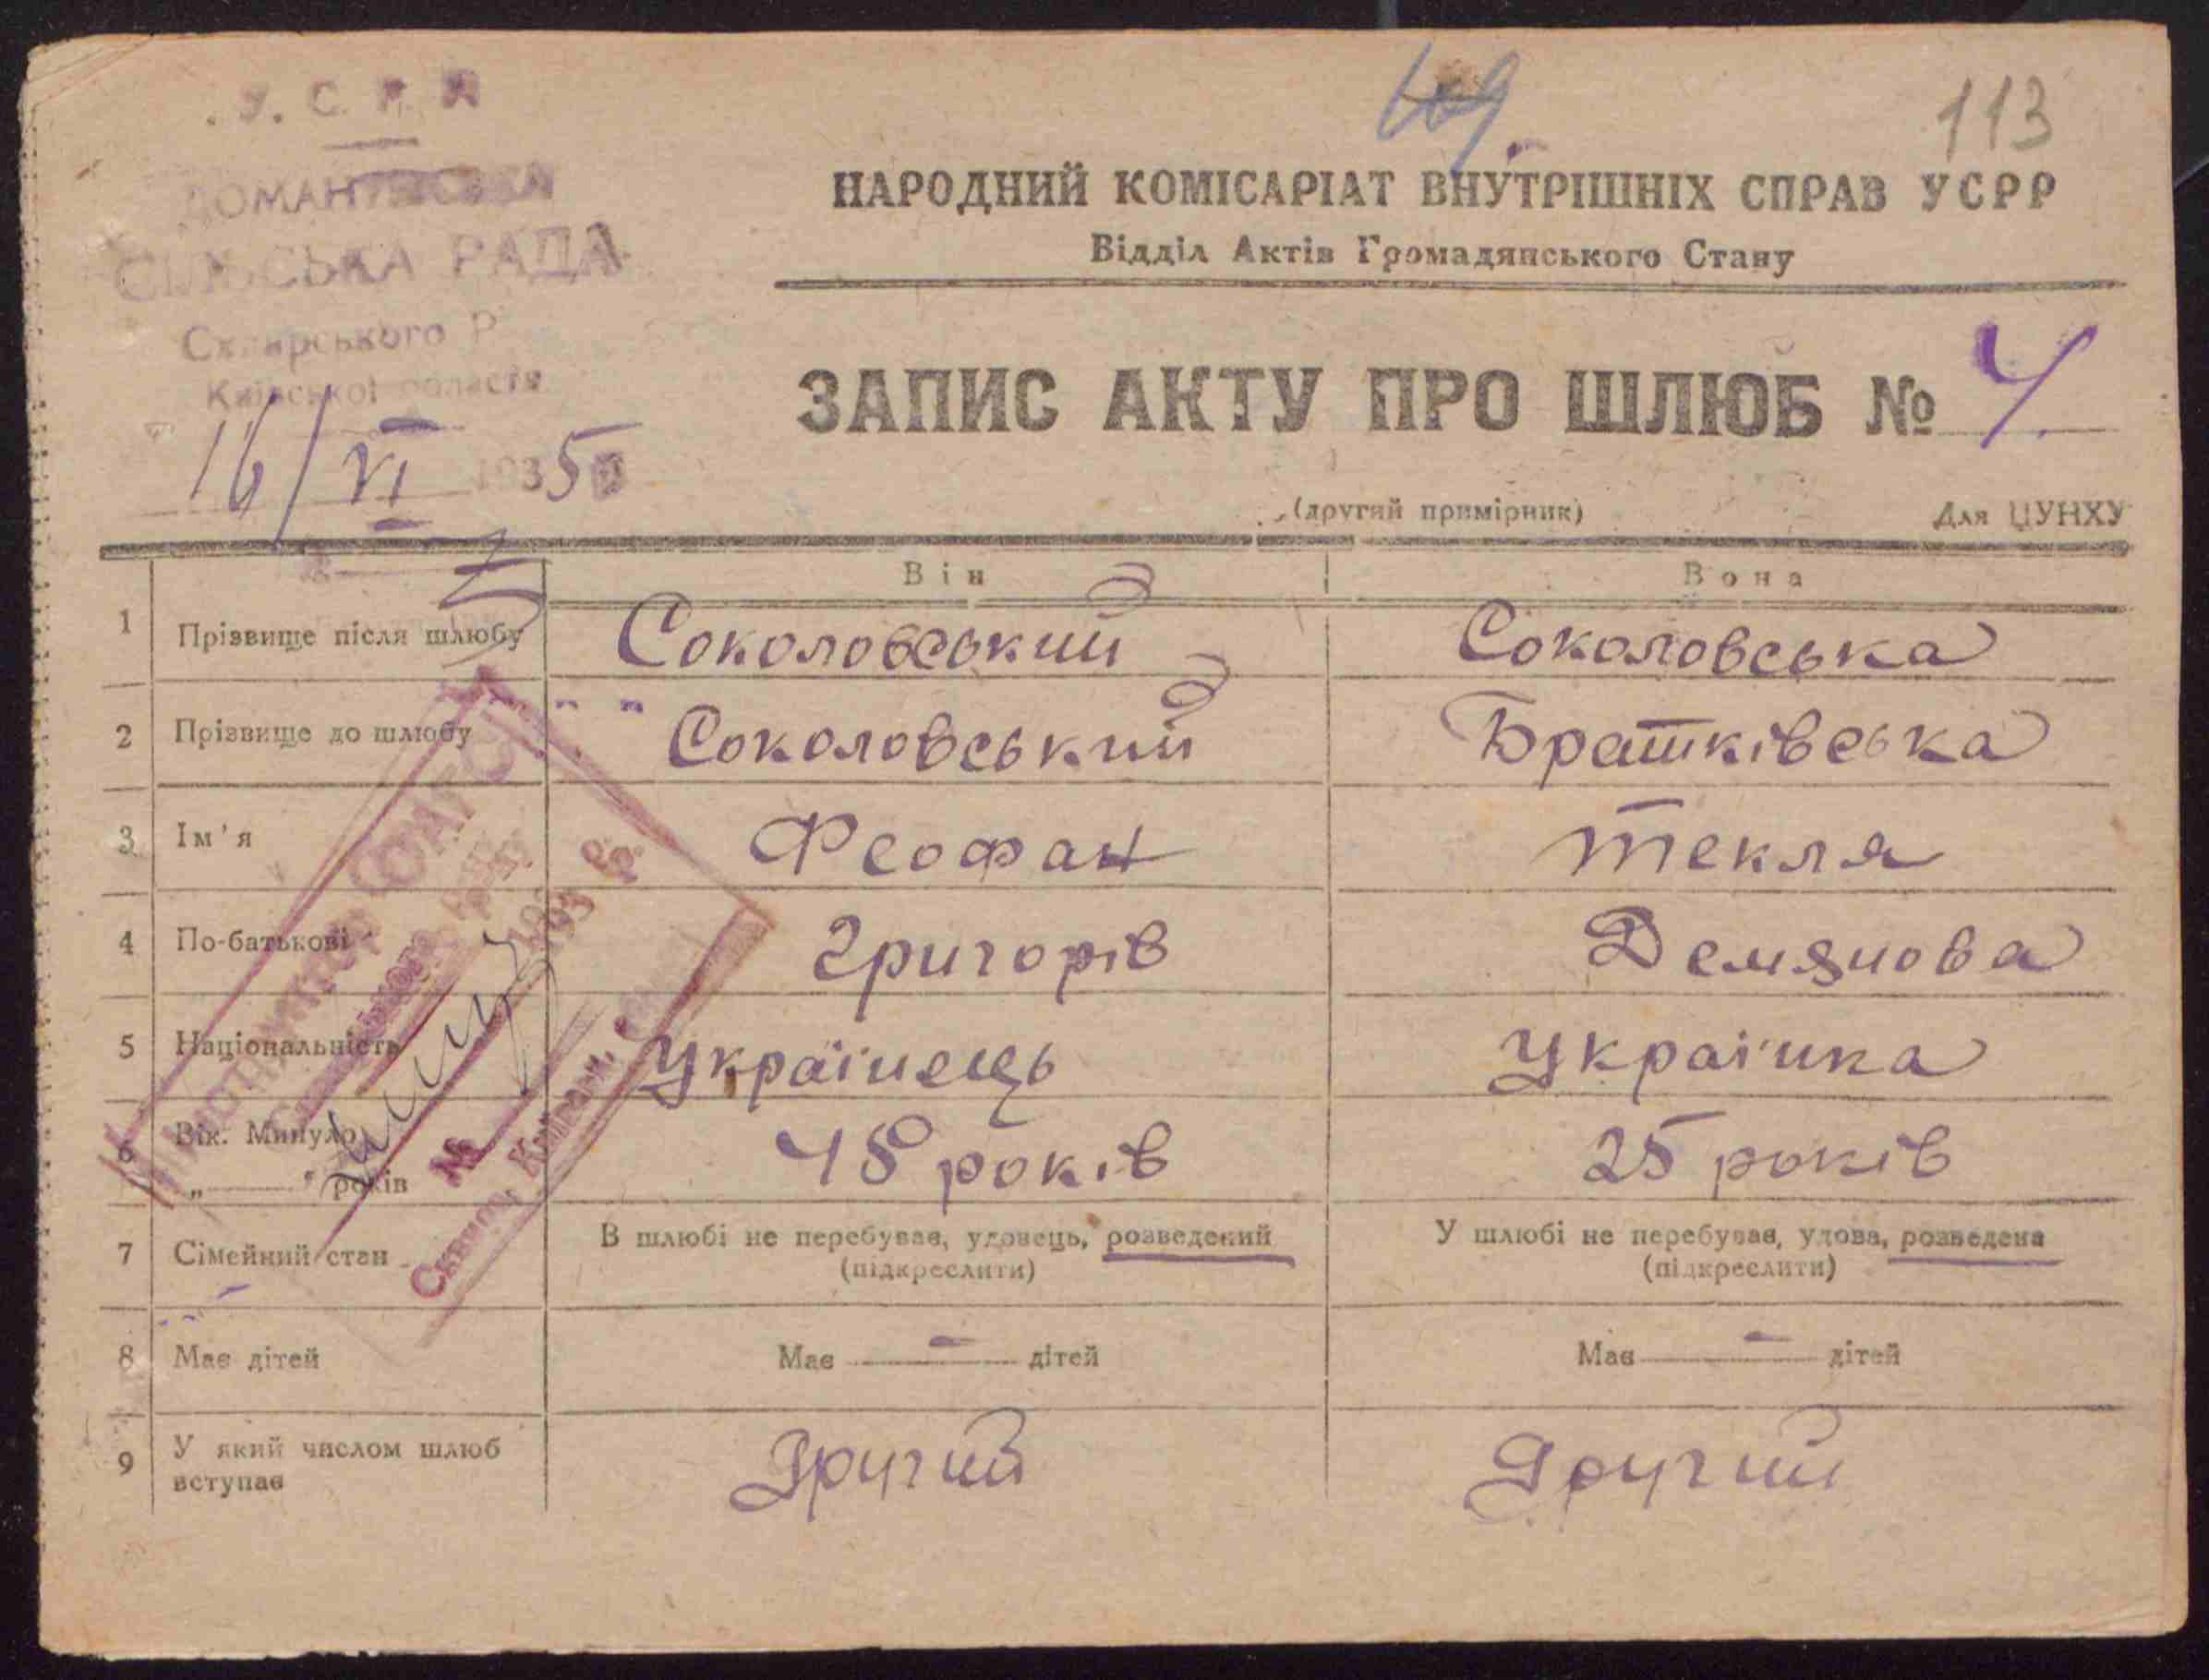 У. С. Р. Р.
109
113
СІЛЬСЬКА РАДА
Сквирського Р
Київської області
16/VI 1935 р
НАРОДНИЙ КОМІСАРІАТ ВНУТРІШНІХ СПРАВ УСРР
Відділ Актів Громадянського Стану
ЗАПИС АКТУ ПРО ШЛЮБ № 4.
(другий примірник)
Для ЦУНХУ
Він
Вона
1 Прізвище після шлюбу Соколовський Соколовська
2 Прізвище до шлюбу Соколовський Братківська
3 Ім'я Феофан Текля
4 По-батькові Григорів Демянова
5 Національність Українець Українка
6 Вік. Минуло 48 років 25 років
„ " років
№
7 Сімейний стан В шлюбі не перебував, удовець, розведений У шлюбі не перебував, удова, розведена
(підкреслити) (підкреслити)
8 Має дітей Має — дітей Має — дітей
9 У який числом шлюб Другий Другий
вступає